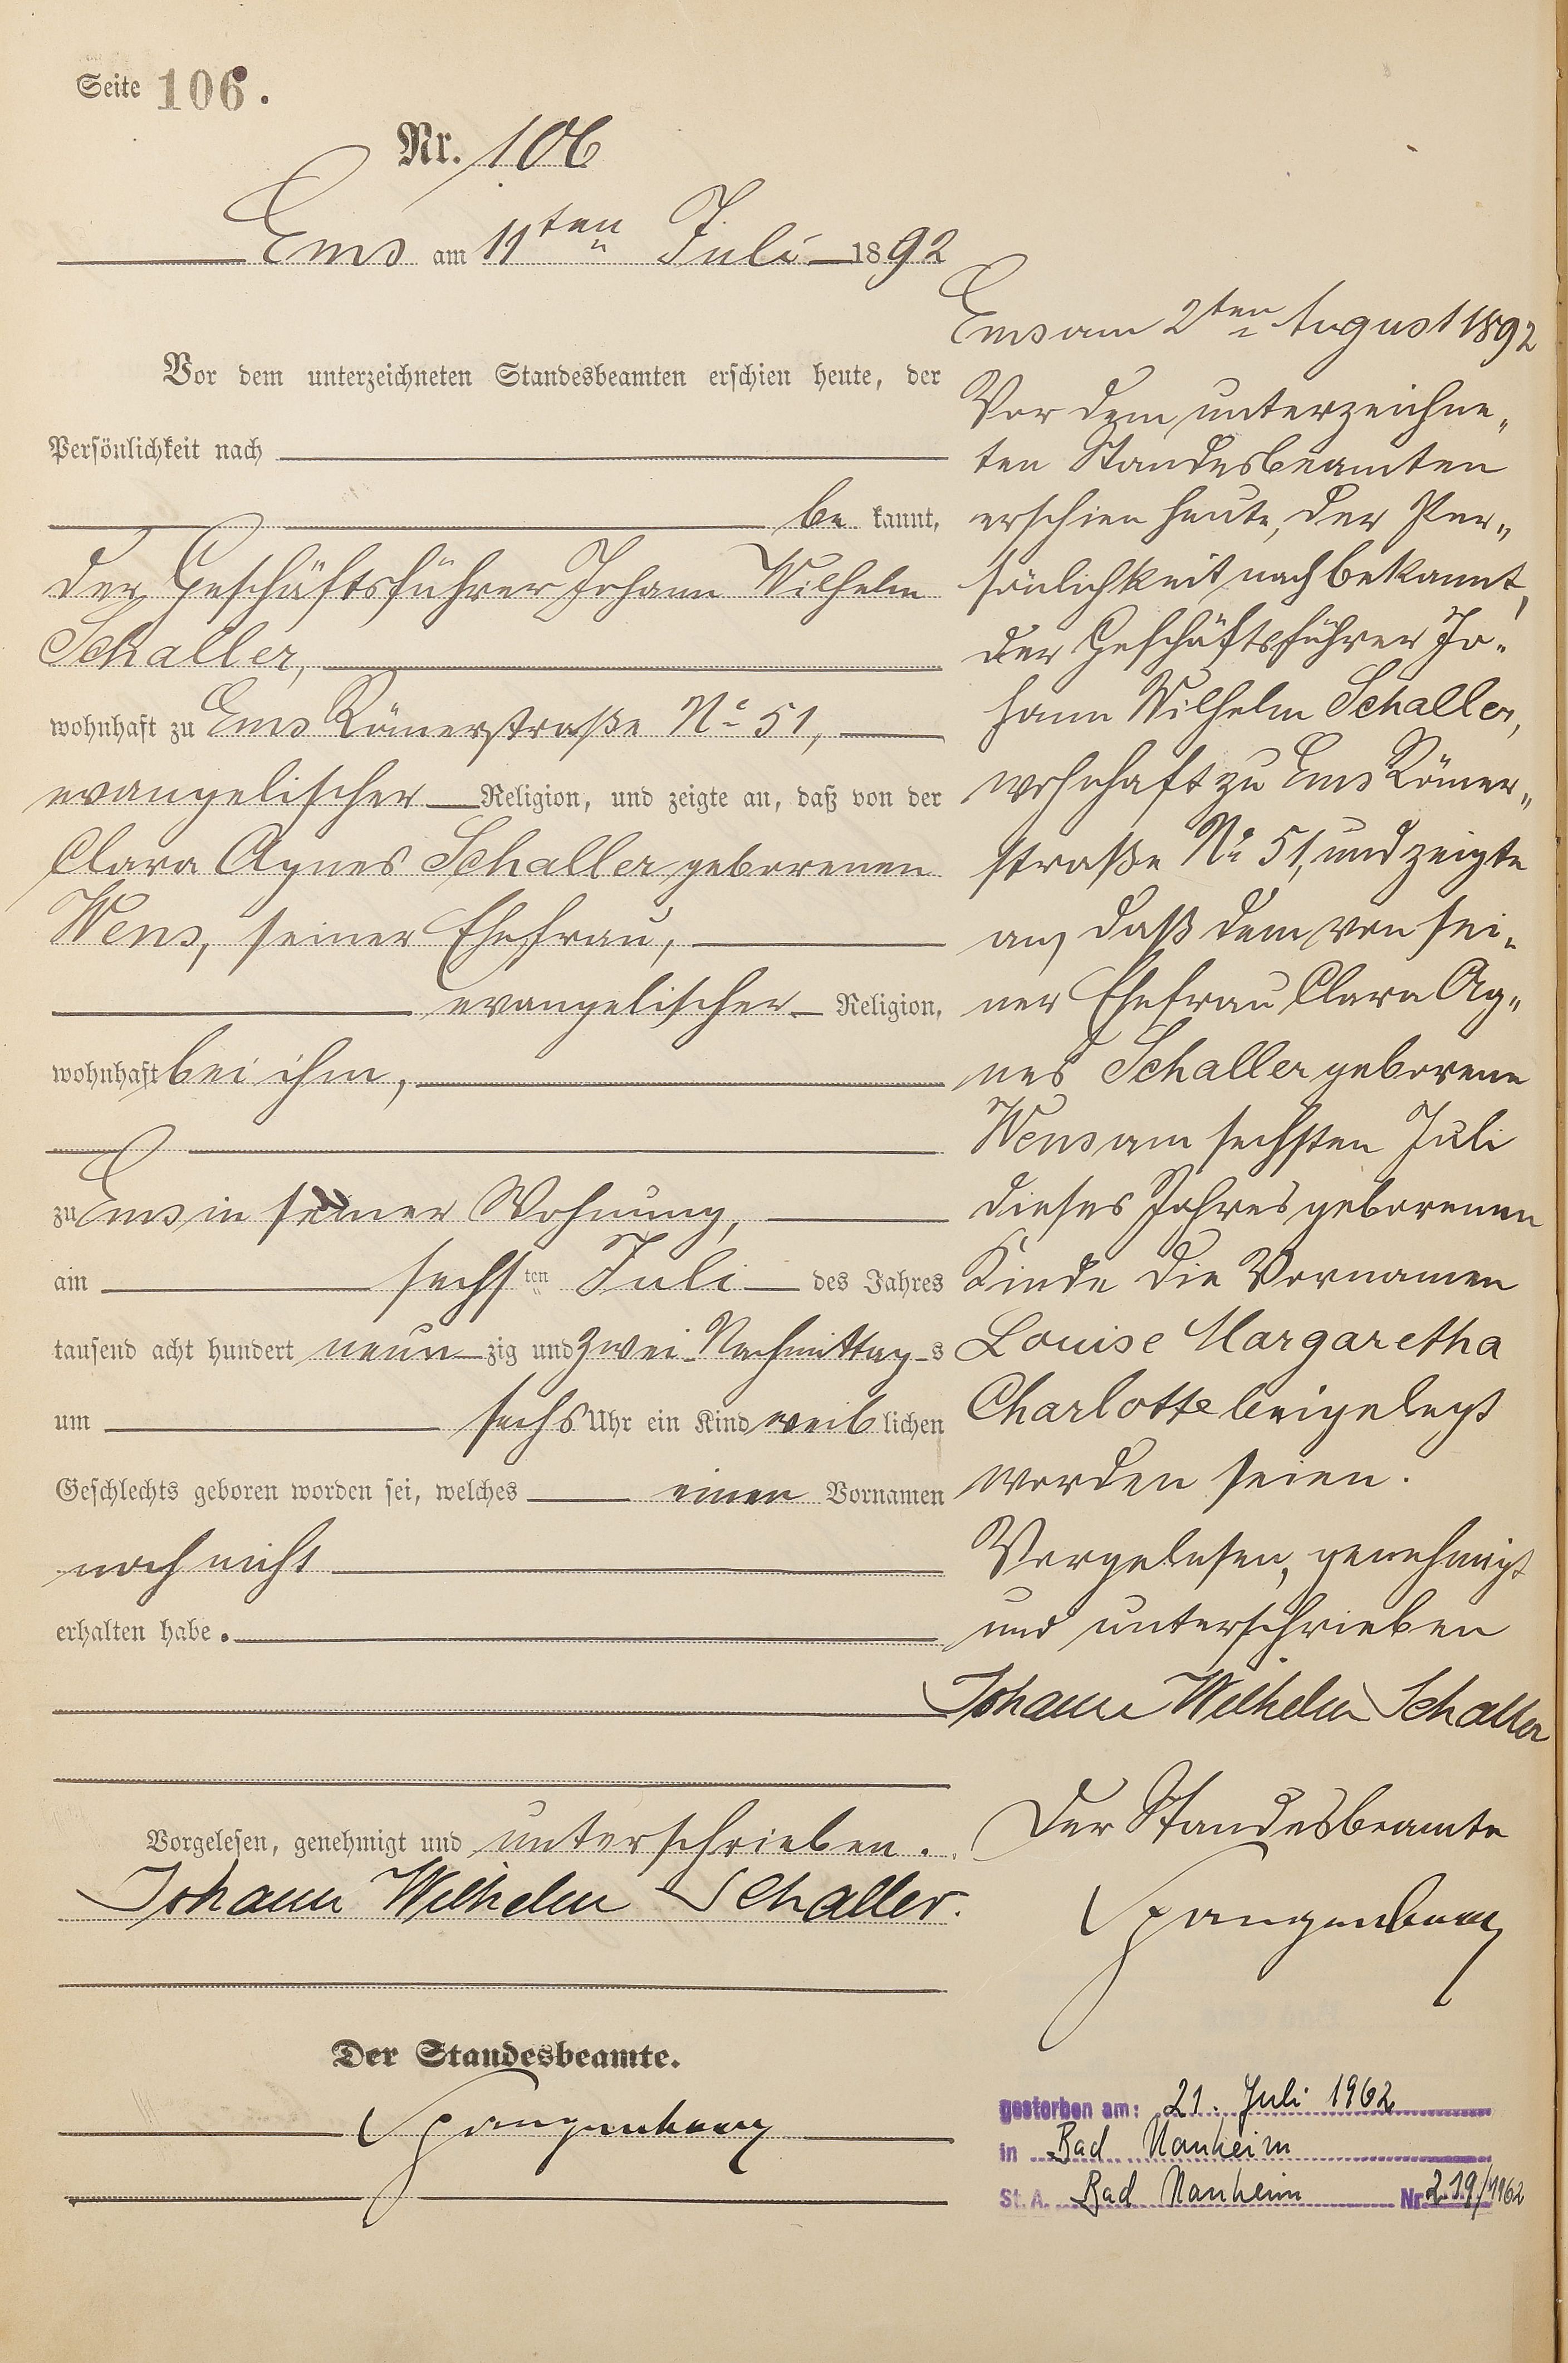 Seite 106.
Nr. 106
Ems am 11ten Juli 1892
Vor dem unterzeichneten Standesbeamten erschien heute, der
Persönlichkeit nach
be kannt,
der Geschäftsführer Johann Wilhelm
Schaller,
wohnhaft zu Ems Römerstraße No 51,
evangelischer Religion, und zeigte an, daß von der
Clara Agnes Schaller geborenen
Wens, seiner Ehefrau,
evangelischer Religion,
wohnhaft bei ihm,
zu Ems in seiner Wohnung,
am sechsten Juli des Jahres
tausend acht hundert neunzig und zwei Nachmittags
um sechs Uhr ein Kind weiblichen
Geschlechts geboren worden sei, welches einen Vornamen
noch nicht
erhalten habe.
Vorgelesen, genehmigt und unterschrieben.
Johann Wilhelm Schaller.
Der Standesbeamte.
Spangenberg
Ems am 2ten August 1892
Vor dem unterzeichne„
ten Standesbeamten
erschien heute, der Per„
sönlichkeit nach bekannt,
der Geschäftsführer Jo„
hann Wilhelm Schaller,
wohnhaft zu Ems Römer„
straße No 51, und zeigte
an, daß dem von sei„
ner Ehefrau Clara Ag„
nes Schaller geborene
Wens am sechsten Juli
dieses Jahres geborenen
Kinde die Vornamen
Louise Margaretha
Charlotte beigelegt
worden seien.
Vorgelesen, genehmigt
und unterschrieben
Johann Wilhelm Schaller
Der Standesbeamte
Spangenberg
gestorben am: 21. Juli 1962
in Bad Nauheim
St. A. Bad Nauheim Nr. 219/1962